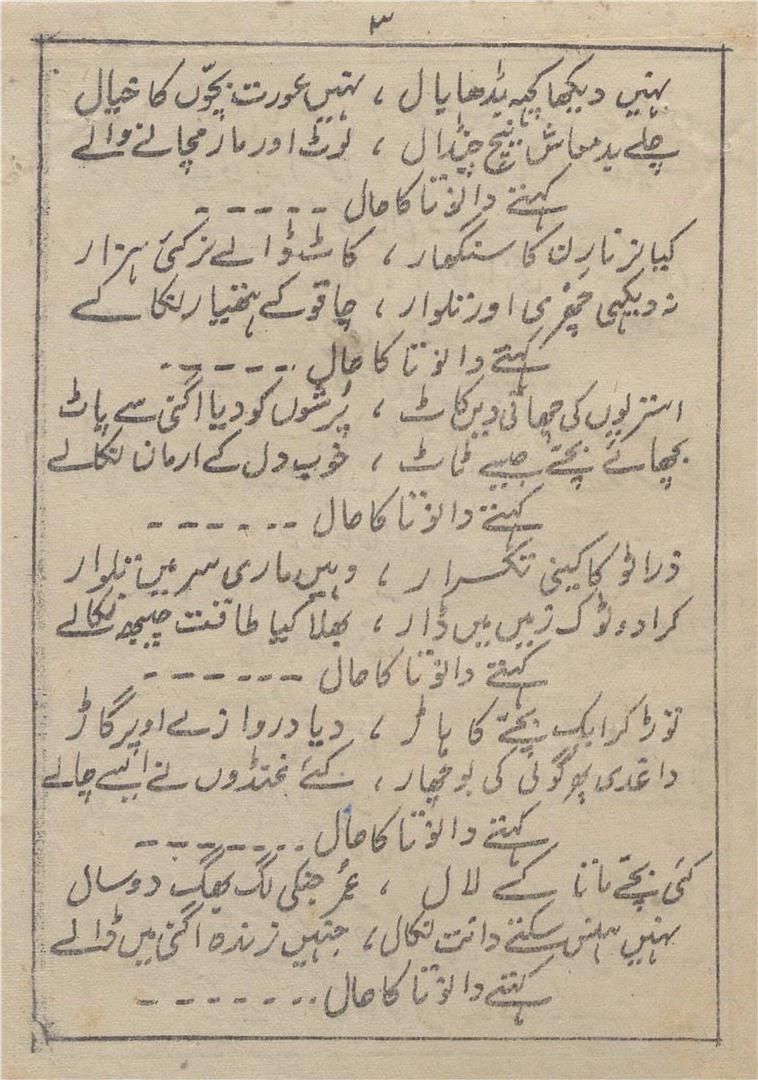 ۳
نہیں دیکھا کچھ بڈھا بال ، نہیں عورت بچّوں کا خیال
چلے بدمعاش نیچ چنڈال ، لوٹ اور مار مچانے والے
کہتے دانوتا کا حال ------
کیا نر نارن کا سنگھار ، کاٹ ڈالے نر کئی ہزار
نہ دیکھی چھری اور تلوار ، چاقو کے ہتھیار لٹکا کے
کہتے دانوتا کا حال ------
استریوں کی چھاتی دیں کاٹ ، پُرشوں کو دیا اگنی سے پاٹ
بچھائے بچّے جیسے ٹاٹ ، خوب دل کے ارمان نکالے
کہتے دانوتا کا حال ------
ذرا ٹوکا کینی تکرار ، وہیں ماری سر میں تلوار
کرا دو ٹوک زمیں میں ڈار ، بھلا کیا طاقت چیبھ نکالے
کہتے دانوتا کا حال ------
توڑا کر ایک بچّے کا ہاڑ ، دیا دروازے اوپر گاڑ
داغدی پھر گولی کی بوچھار ، کئے غنڈوں نے ایسے چالے
کہتے دانوتا کا حال -------
کئی بچّے ماتا کے لال ، عمر جنکی لگ بھگ دو سال
نہیں ہلنے سکتے دانت نکال ، جنہیں زندہ اگنی میں ڈالے
کہتے دانوتا کا حال -------